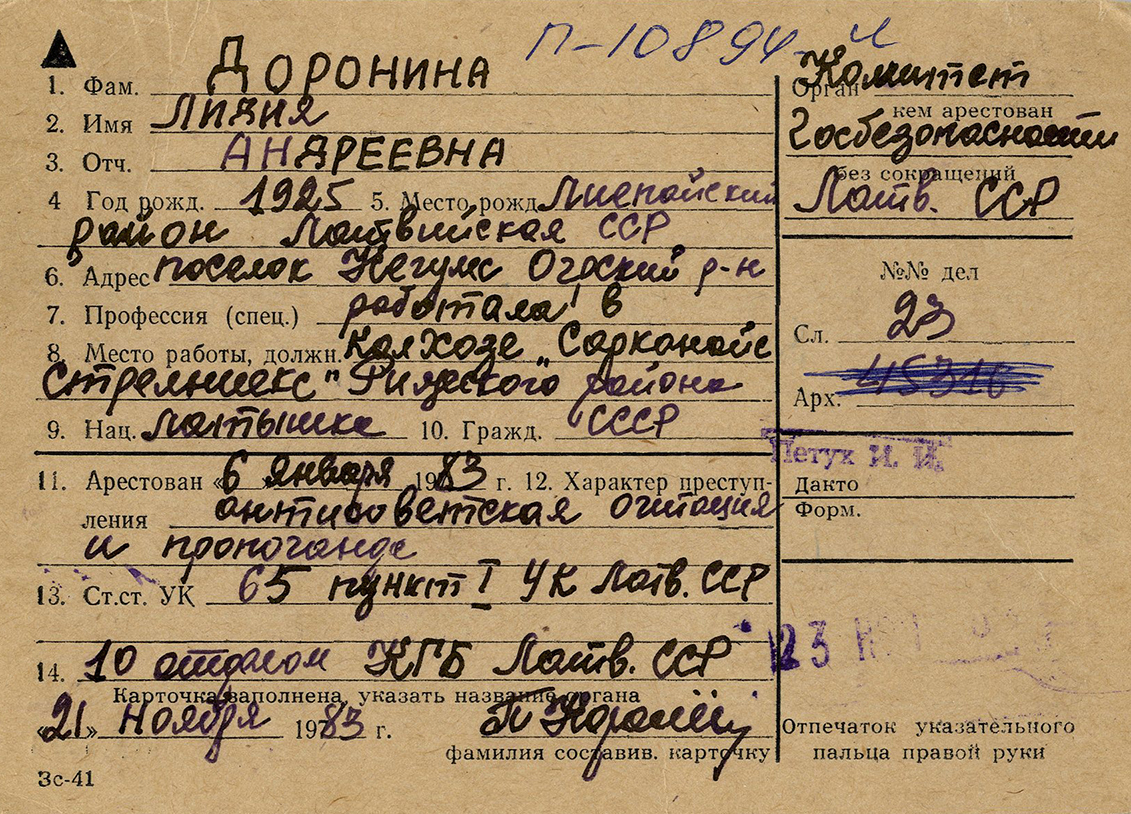 П-10894
А
1. Фам. ДОРОНИНА
2. Имя ЛИДИЯ
3. Отч. АНДРЕЕВНА
4 Год рожд. 1925 5. Место рожд Лиепайский
район Латвийская ССР
6. Адрес поселок Кегумс Огрский р-н
7. Профессия (спец.) работала в
8. Место работы, должн. колхозе „Сарканайс
Стрелниекс" Рижского района
9. Нац. латышка 10. Гражд. СССР
11. Арестован «6 января 1983 г. 12. Характер преступ-
ления антисоветская агитация
и пропоганда
13. Ст.ст. УК 65 пункт I УК Латв. ССР
14. 10 отделом КГБ Латв. ССР
Карточка заполнена, указать название органа
«21» ноября 1983 г.
фамилия составив. карточку
Зс-41
Орган Комитет
кем арестован
Госбезопасности
без сокращений
Латв. ССР
№№ дел
Сл. 23
Арх. 45316
Петух И. И.
Дакто
Форм.
23
Отпечаток указательного
пальца правой руки